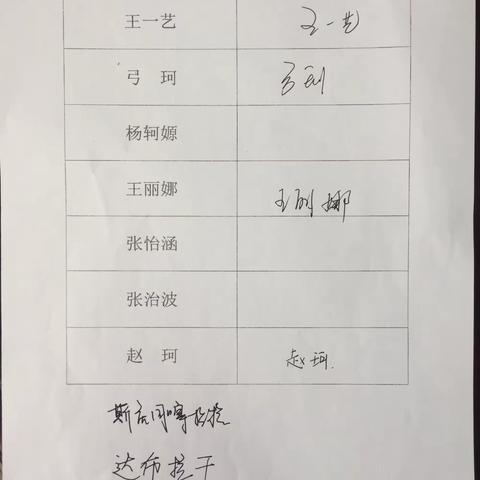 王一艺 王一艺
弓 珂 弓珂
杨轲嫄
王丽娜 王丽娜
张怡涵
张治波
赵 珂 赵珂.
达布拉干